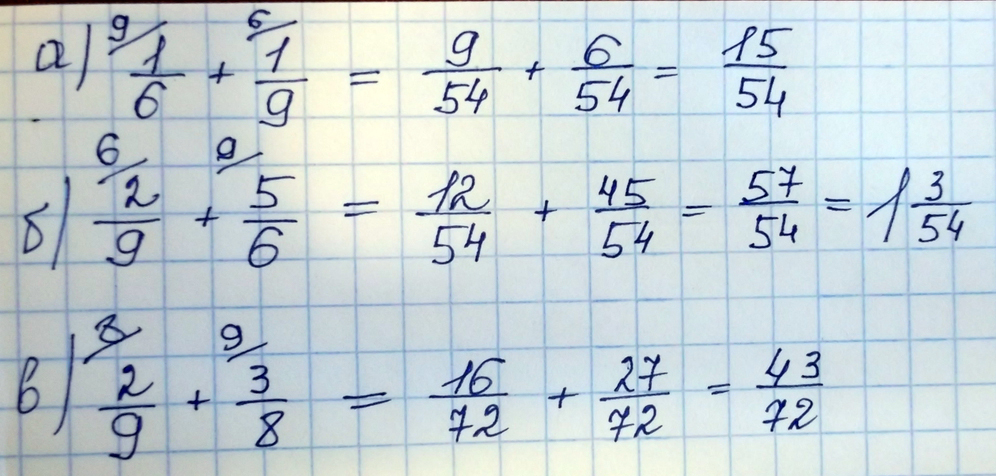 а) ⁹⁄ 1/6 + ⁶⁄ 1/9 = 9/54 + 6/54 = 15/54
б) ⁶⁄ 2/9 + ⁹⁄ 5/6 = 12/54 + 45/54 = 57/54 = 1 3/54
в) ⁸⁄ 2/9 + ⁹⁄ 3/8 = 16/72 + 27/72 = 43/72